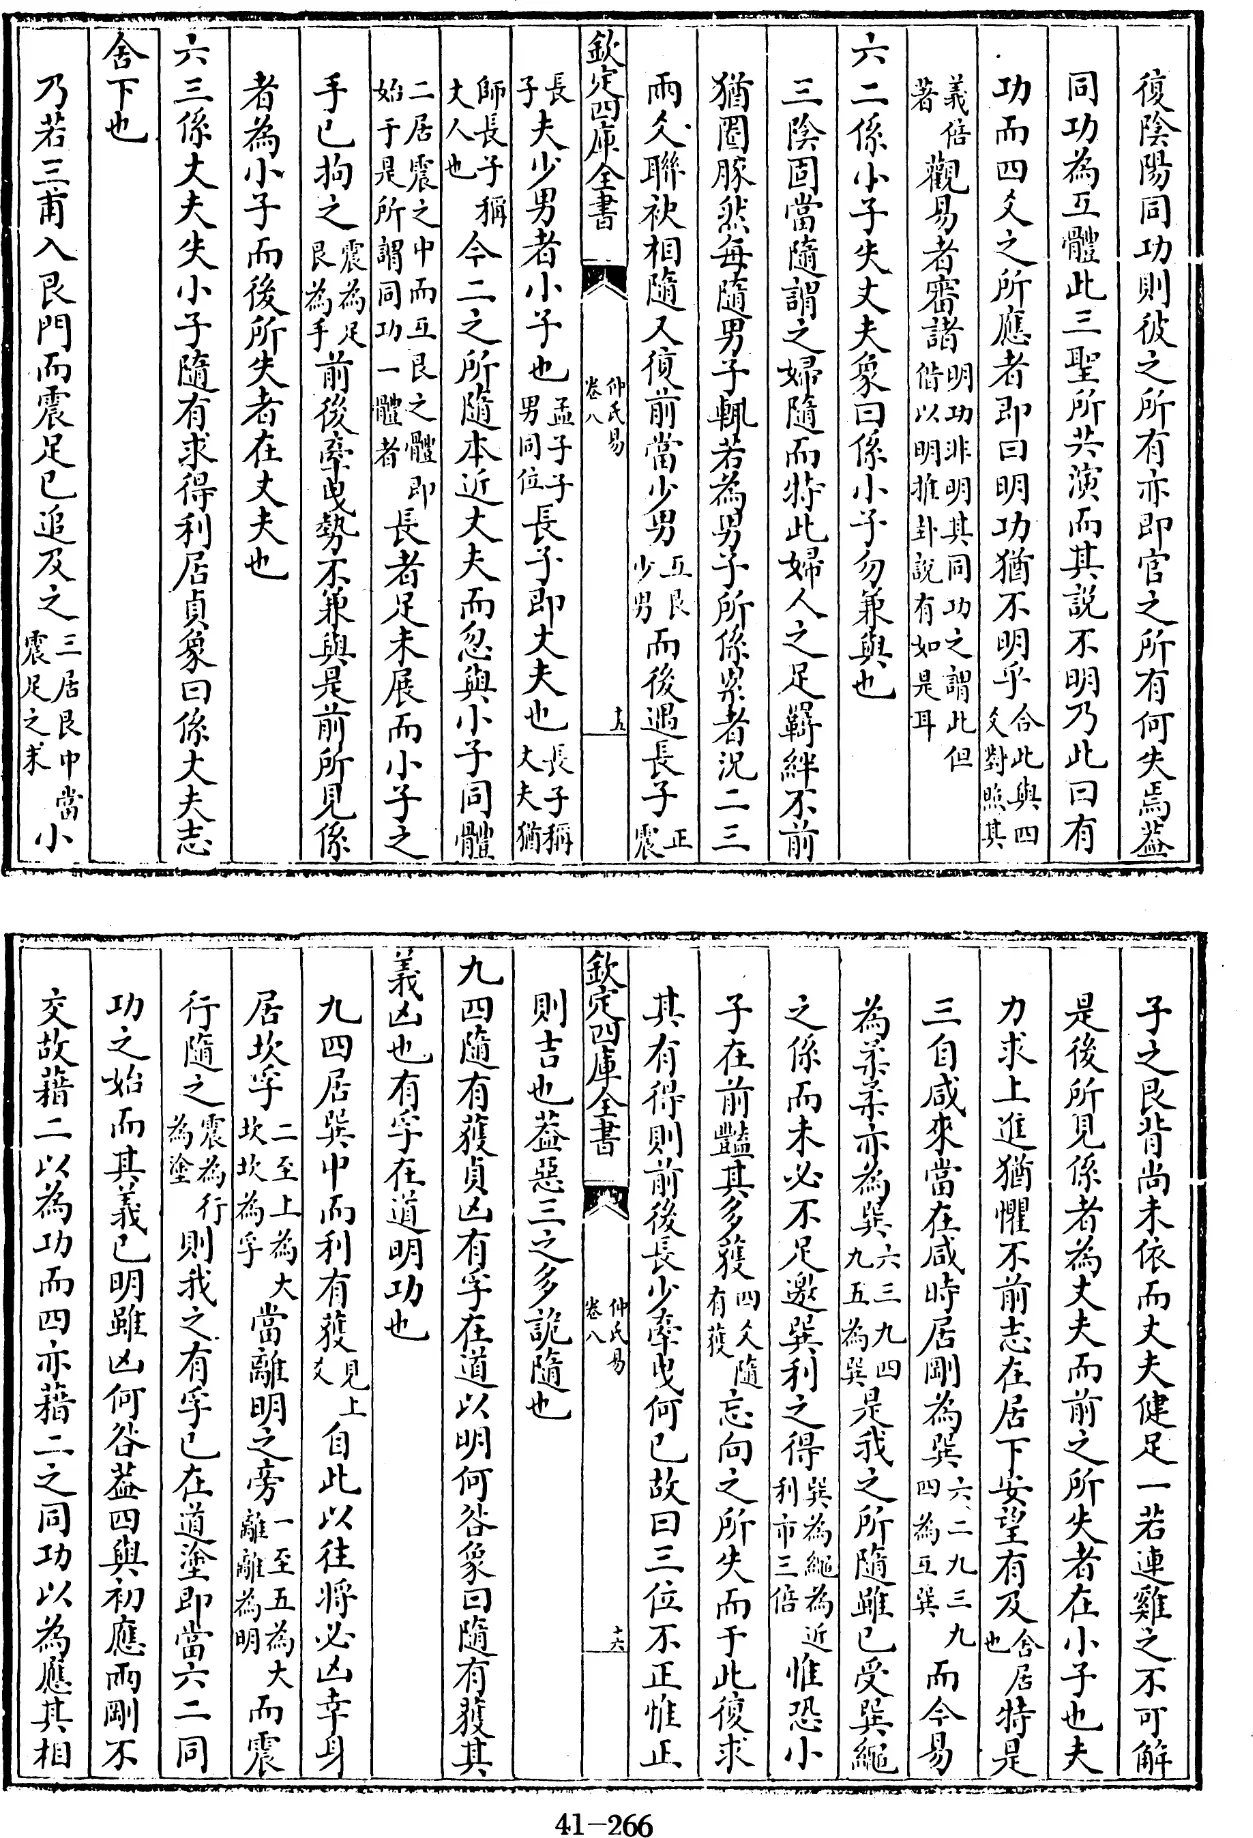 復陰陽同功則彼之所有亦即官之所有何失焉葢
同功為互體此三聖所共演而其説不明乃此曰有
功而四爻之所應者即曰明功猶不明乎合此與四爻對照其
義倍著觀易者審諸明功非明其同功之謂此但偕以明推卦説有如是耳
六二係小子失丈夫象曰係小子勿兼與也
三陰固當隨謂之婦隨而特此婦人之足羇絆不前
猶圈豚然每隨男子輒若為男子所係累者況二三
兩爻聯袂相隨又復前當少男互艮少男而後遇長子正震
長子夫少男者小子也孟子子男同位長子即丈夫也長子稱丈夫猶
師長子稱丈人也今二之所隨本近丈夫而忽與小子同體
二居震之中而互艮之體即始于是所謂同功一體者長者足未展而小子之
手已拘之震為足艮為手前後牽曳勢不兼與是前所見係
者為小子而後所失者在丈夫也
六三係丈夫失小子隨有求得利居貞象曰係丈夫志
舍下也
乃若三甫入艮門而震足已追及之三居艮中當震足之末小
欽定四庫全書
仲氏易
卷八
十五
子之艮背尚未依而丈夫健足一若連雞之不可解
是後所見係者為丈夫而前之所失者在小子也夫
力求上進猶懼不前志在居下安望有及舍居也特是
三自咸來當在咸時居剛為巽六二九三九四為互巽而今易
為柔柔亦為巽六三九四九五為巽是我之所隨雖已受巽繩
之係而未必不足邀巽利之得巽為繩為近利市三倍惟恐小
子在前豔其多獲四爻隨有獲忘向之所失而于此復求
其有得則前後長少牽曳何已故曰三位不正惟正
則吉也葢惡三之多詭隨也
九四隨有獲貞凶有孚在道以明何咎象曰隨有獲其
義凶也有孚在道明功也
九四居巽中而利有獲見上爻自此以往將必凶幸身
居坎孚二至上為大坎坎為孚當離明之旁一至五為大離離為明而震
行隨之震為行為塗則我之有孚已在道塗即當六二同
功之始而其義已明雖凶何咎葢四與初應兩剛不
交故藉二以為功而四亦藉二之同功以為應其相
欽定四庫全書
仲氏易
卷八
十六
41-266